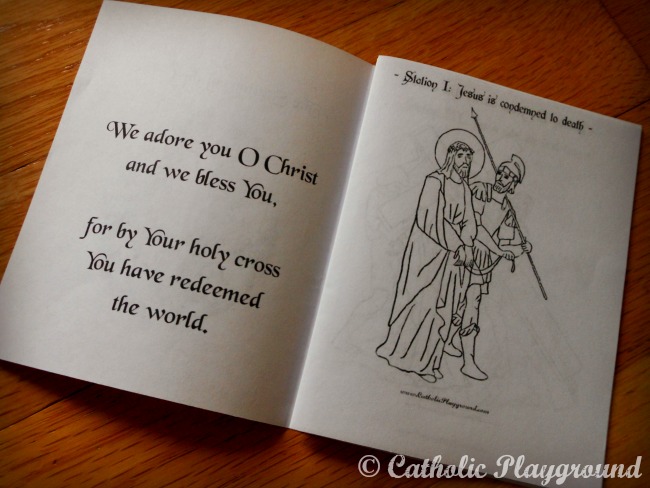 We adore you O Christ
and we bless You,
for by Your holy cross
You have redeemed
the world.
- Station I: Jesus is condemned to death -
www.CatholicPlayground.com
© Catholic Playground